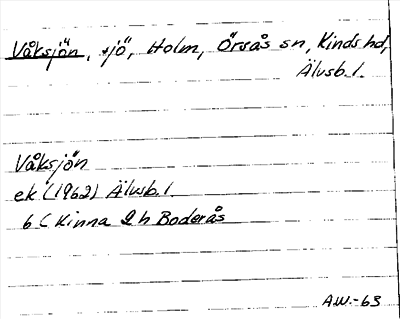 Våksjön, sjö, Holm, Örsås sn, Kinds hd,
Älvsb. l.
Våksjön
ek (1962) Älvsb. l.
6 C Kinna 2 h Boderås
A.W.-63